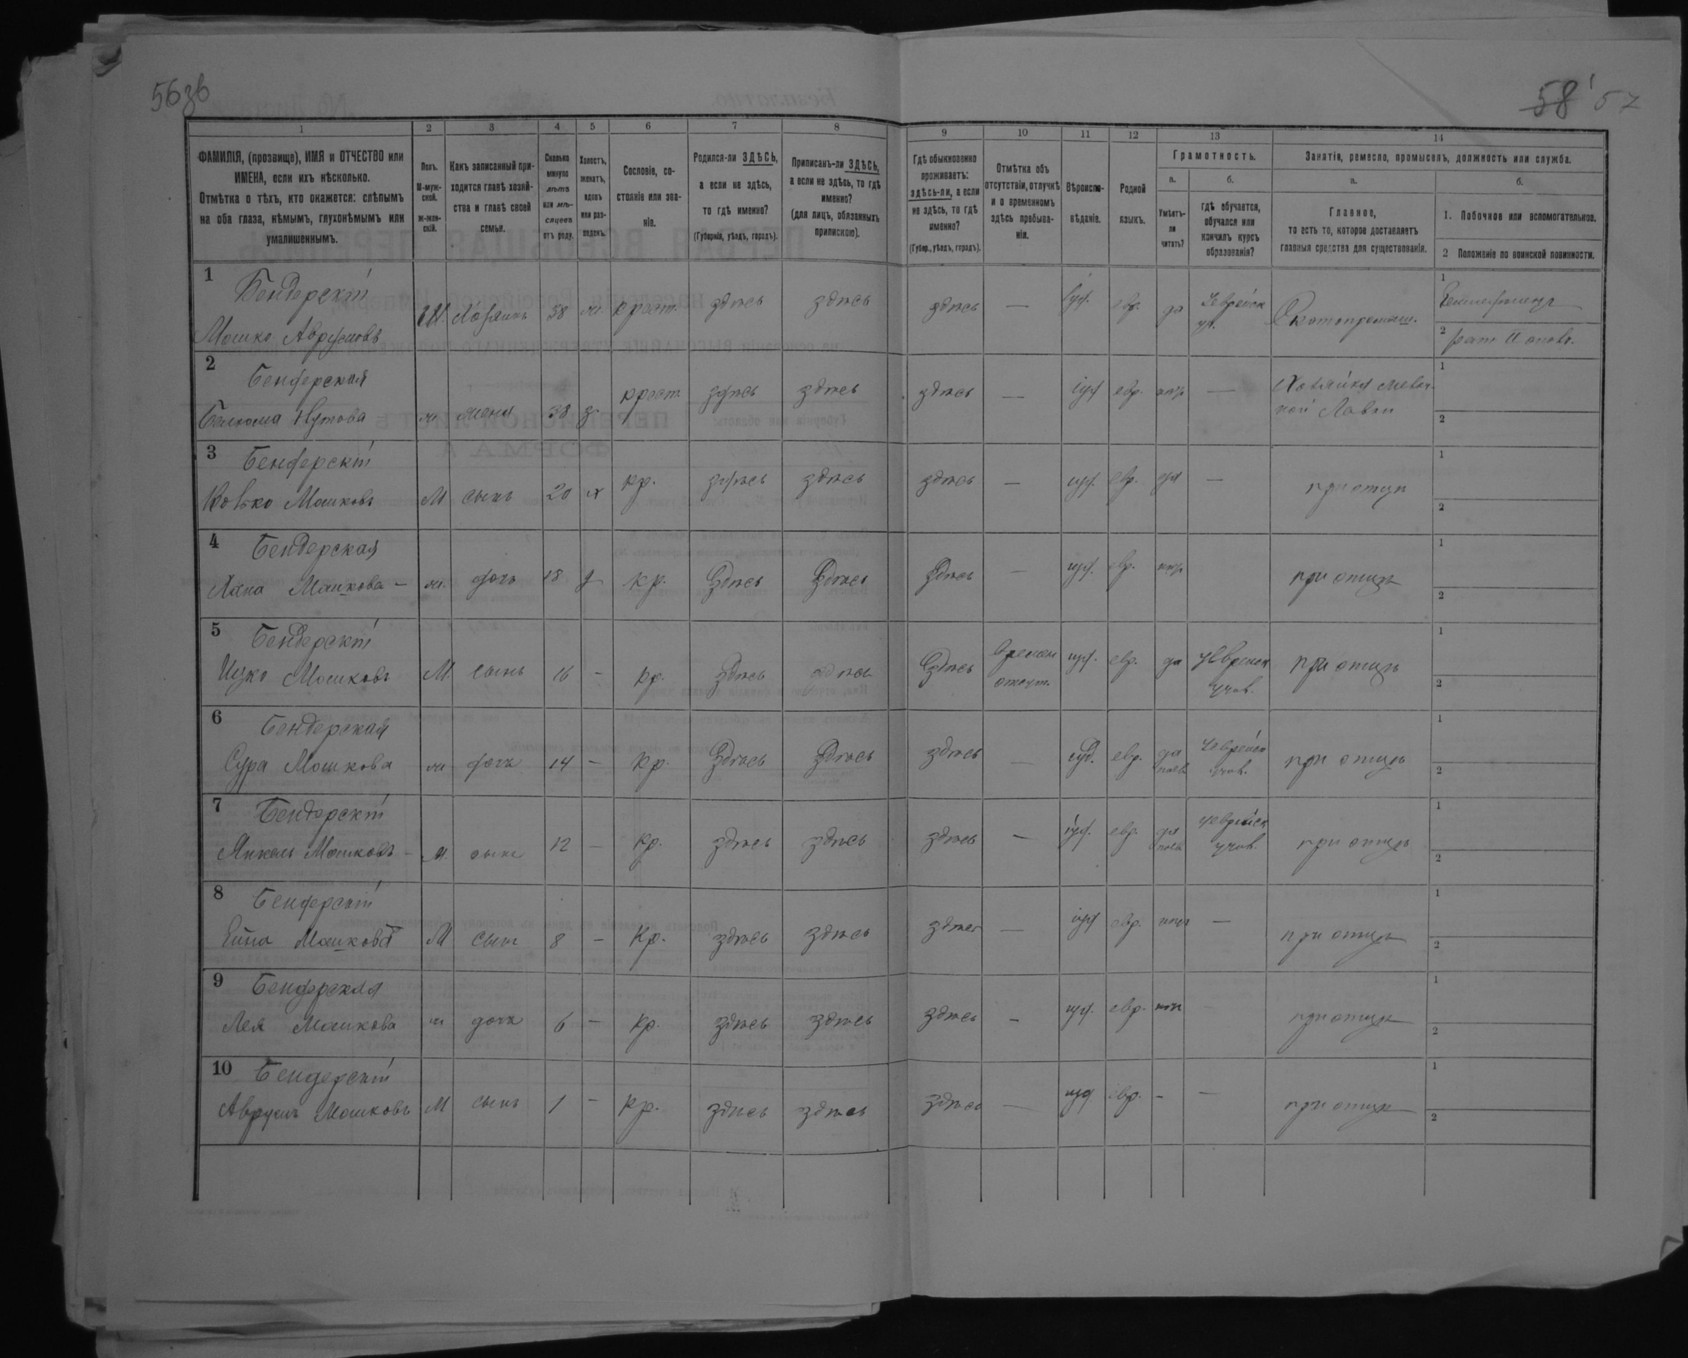 56зб
58 57
1 2 3 4 5 6 7 8 9 10 11 12 13 14
ФАМИЛІЯ, (прозвище), ИМЯ и ОТЧЕСТВО или
ИМЕНА, если ихъ нѣсколько.
Отмѣтка о тѣхъ, кто окажется: слѣпымъ
на оба глаза, нѣмымъ, глухонѣмымъ или
умалишеннымъ.
Полъ.
М-муж-
ской.
ж-жен-
скій.
Какъ записанный при-
ходится главѣ хозяй-
ства и главѣ своей
семьи.
Сколько
минуло
лѣтъ
или мѣ-
сяцевъ
отъ роду.
Холостъ,
женатъ,
вдовъ
или раз-
веденъ.
Сословіе, со-
стояніе или зва-
ніе.
Родился-ли ЗДѢСЬ,
а если не здѣсь,
то гдѣ именно?
(Губернія, уѣздъ, городъ).
Приписанъ-ли ЗДѢСЬ,
а если не здѣсь, то гдѣ
именно?
(для лицъ, обязанныхъ
припискою).
Гдѣ обыкновенно
проживаетъ:
здѣсь-ли, а если
не здѣсь, то гдѣ
именно?
(Губер., уѣздъ, городъ).
Отмѣтка объ
отсутствіи, отлучкѣ
и о временномъ
здѣсь пребыва-
ніи.
Вѣроиспо-
вѣданіе.
Родной
языкъ.
Грамотность.
а.
Умѣетъ-
ли
читать?
б.
гдѣ обучается,
обучался или
кончилъ курсъ
образованія?
Занятія, ремесло, промыселъ, должность или служба.
а.
Главное,
то есть то, которое доставляетъ
главныя средства для существованія.
б.
1. Побочное или вспомогательное.
2 Положеніе по воинской повинности.
1 Бендерскій
Мошко Аврумовъ М хозяинъ 38 ж крест. здѣсь здѣсь здѣсь — іуд. евр. да
1
2
2 Бендерская
Нутова ж. жена 38 з. крест здѣсь здѣсь здѣсь — іуд евр. —
1
2
3 Бендерскій
Мошковъ М сынъ 20 х кр. здѣсь здѣсь здѣсь — іуд. евр. да — при отцѣ
1
2
4 Бендерская
Мошкова — ж. дочь 18 д кр. Здѣсь Здѣсь Здѣсь — іуд. евр. при отцѣ
1
2
5 Бендерскій
Ицко Мошковъ М сынъ 16 — кр. Здѣсь здѣсь Здѣсь іуд. евр. да при отцѣ
1
2
6 Бендерская
Сура Мошкова ж дочь 14 — кр. Здѣсь Здѣсь здѣсь — іуд. евр. да при отцѣ
1
2
7 Бендерскій
Янкель Мошковъ — м сынъ 12 — кр. здѣсь здѣсь здѣсь — іуд. евр. да при отцѣ
1
2
8 Бендерскій
Мошковъ М сынъ 8 — Кр. здѣсь здѣсь здѣсь — іуд евр. — при отцѣ
1
2
9 Бендерская
Лея Мошкова ж дочь 6 — кр. здѣсь здѣсь здѣсь — іуд. евр. при отцѣ
1
2
10 Бендерскій
Аврумъ Мошковъ М сынъ 1 — кр. здѣсь здѣсь здѣсь — іуд евр. — — при отцѣ
1
2